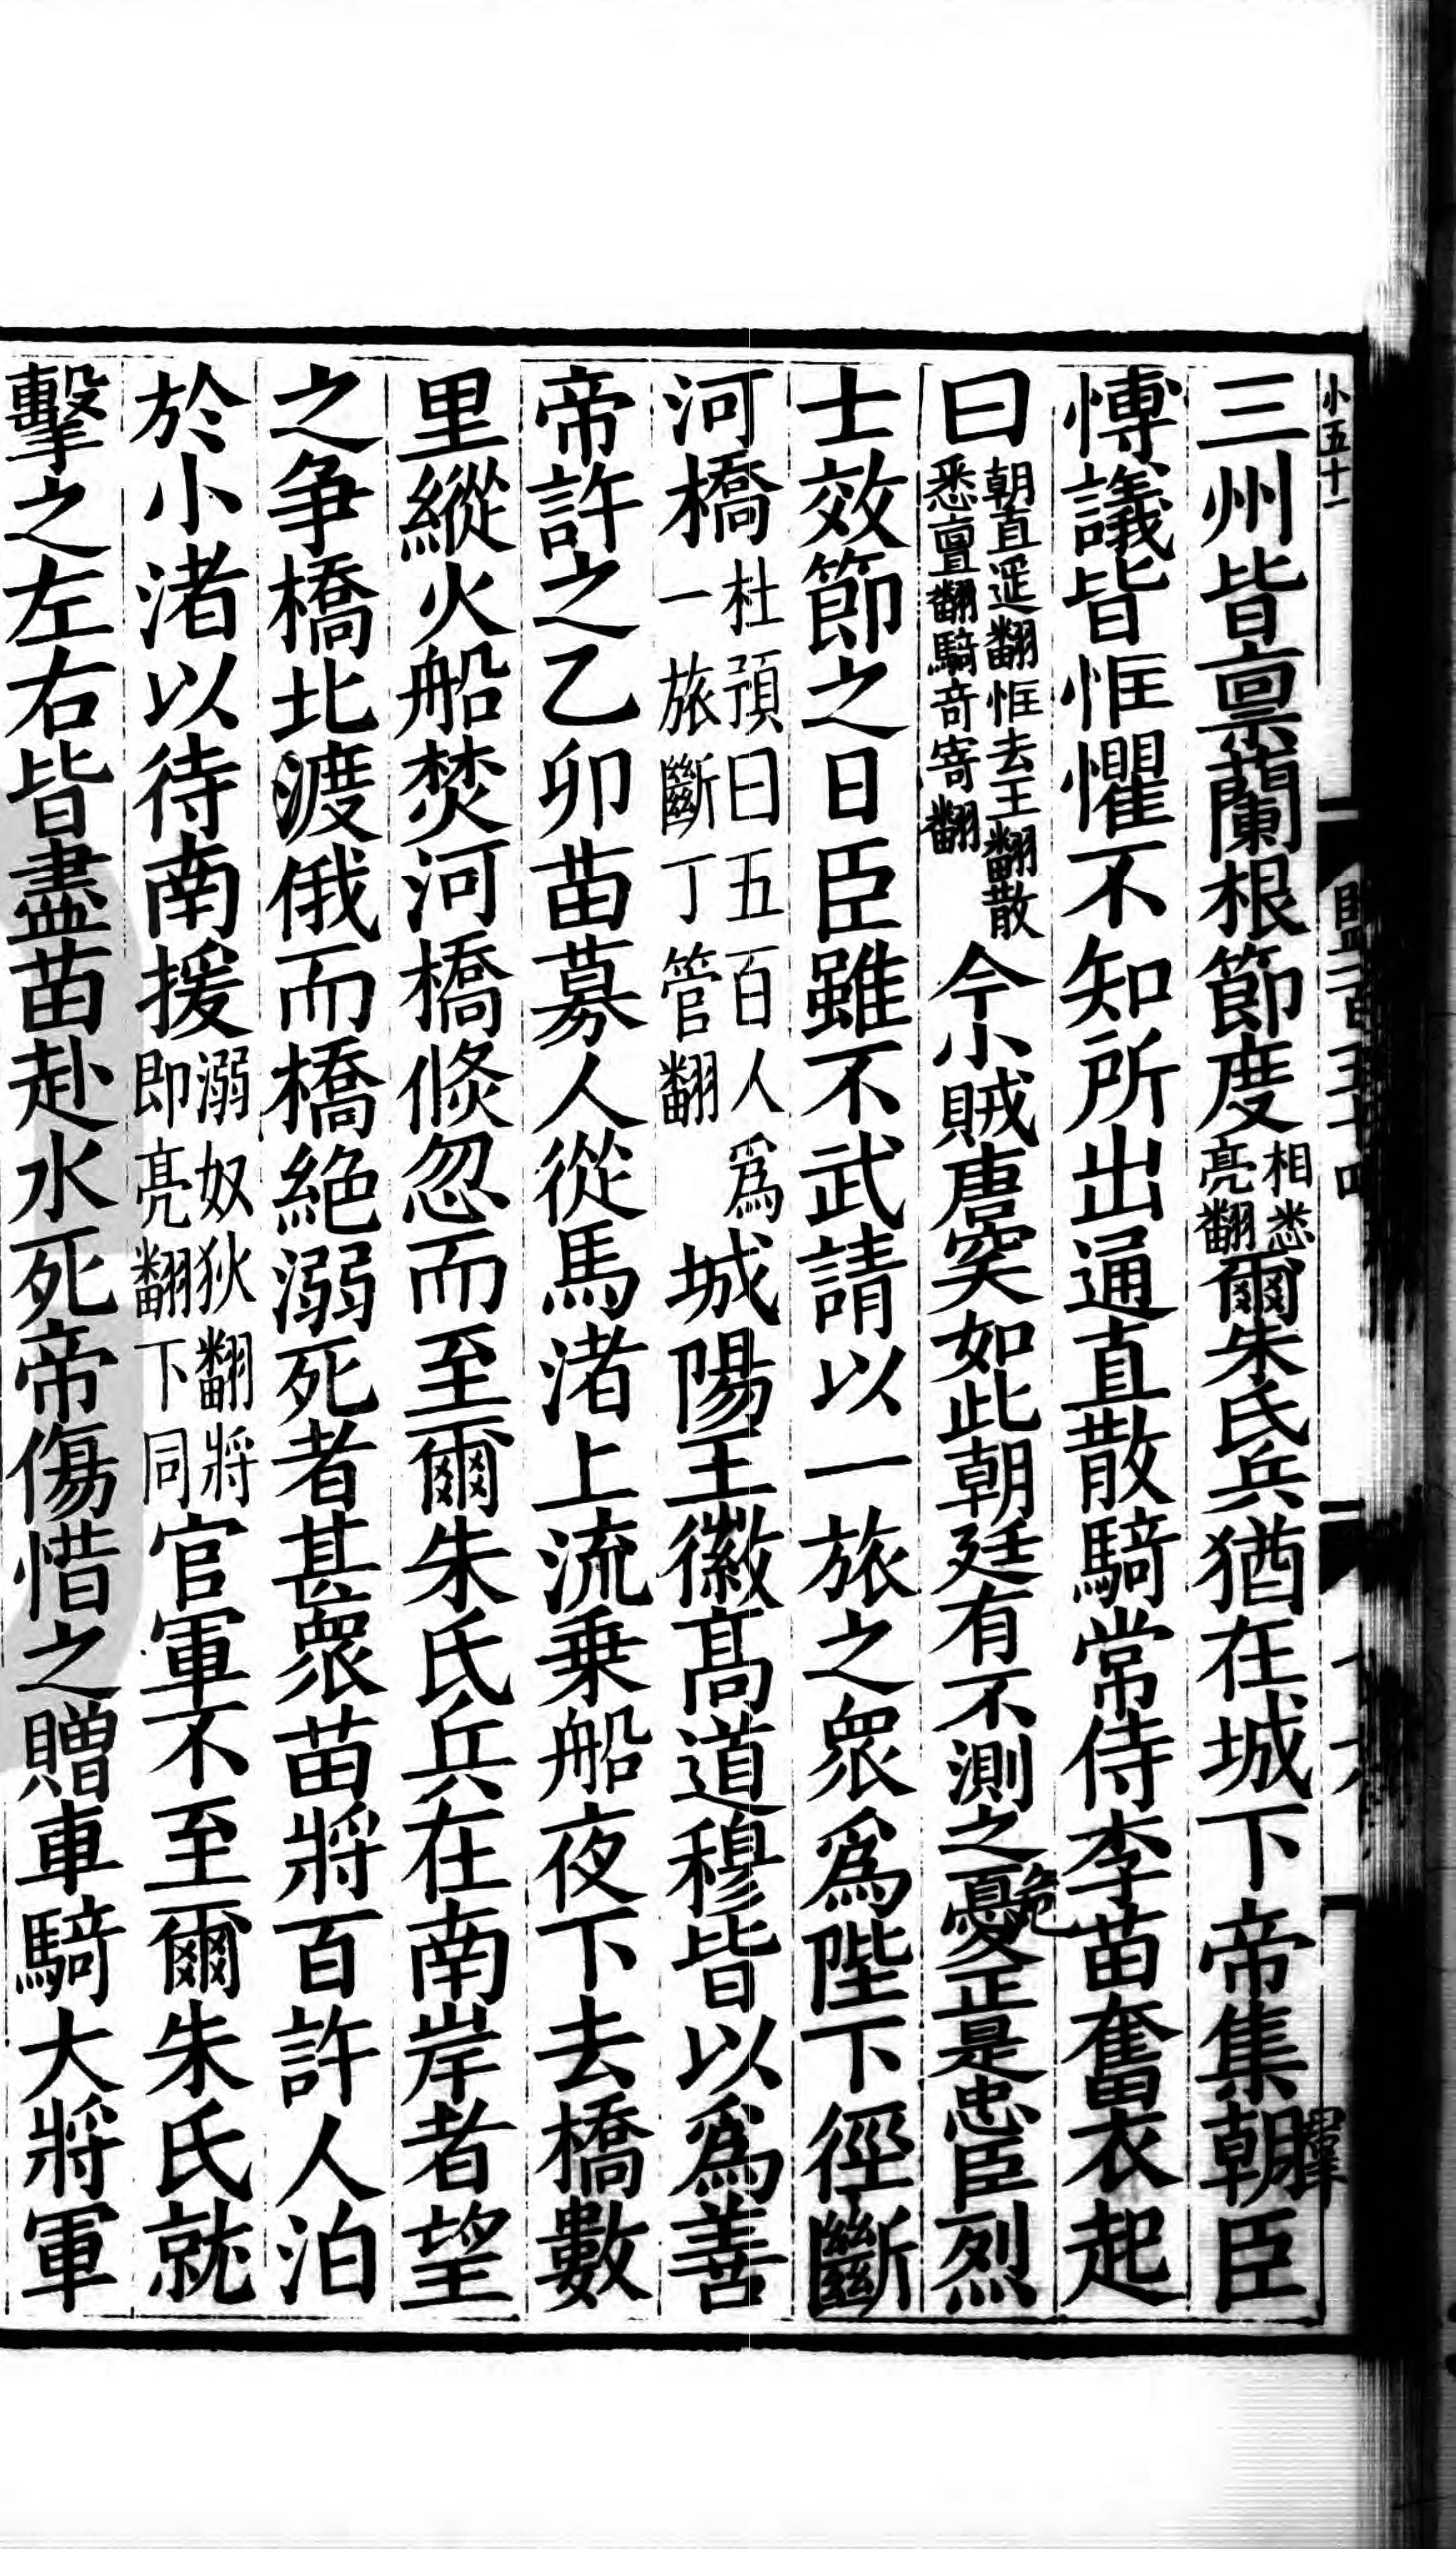 小五十一
三州皆禀蘭根節度相悉亮翻爾朱氏兵猶在城下帝集朝臣
愽議皆恇懼不知所出通直散騎常侍李苗奮衣起
曰朝直遥翻恇去王翻散悉亶翻騎奇寄翻今小賊唐突如此朝廷有不測之憂危正是忠臣烈
士效節之日臣雖不武請以一旅之衆爲陛下徑斷
河橋杜預曰五百人爲一旅斷丁管翻城陽王徽髙道穆皆以爲善
帝許之乙卯苗募人從馬渚上流乗船夜下去橋數
里縱火船焚河橋倐忽而至爾朱氏兵在南岸者望
之争橋北渡俄而橋絶溺死者甚衆苗將百許人泊
於小渚以待南援溺奴狄翻將即亮翻下同官軍不至爾朱氏就
擊之左右皆盡苗赴水死帝傷惜之贈車騎大將軍